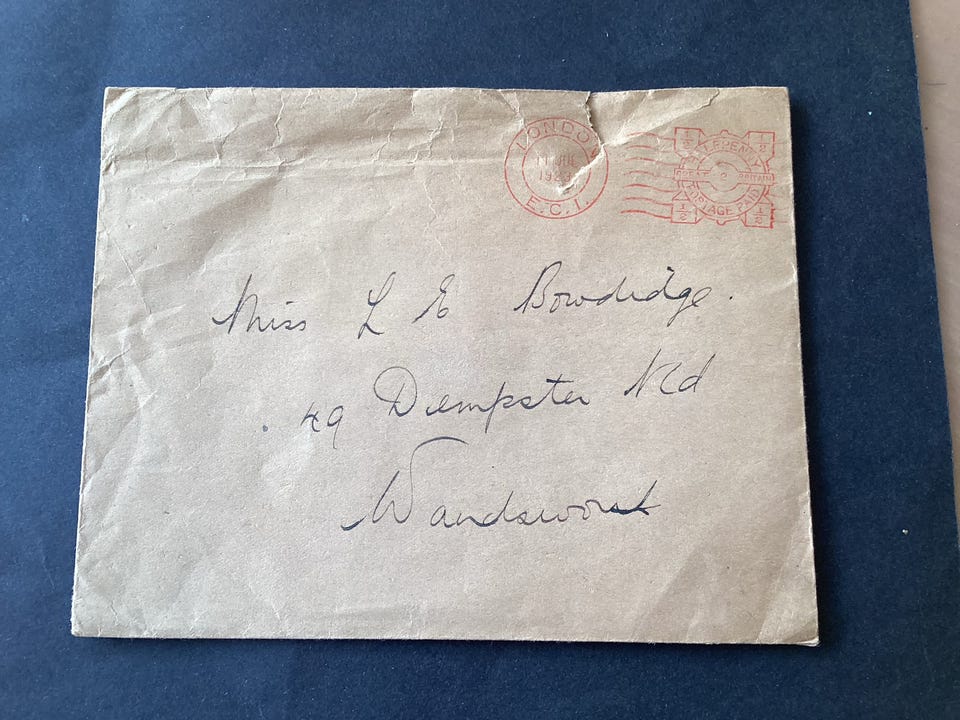 LONDON
11 JUL
192
E.C.1.
1/2
1/2
GREAT 2 BRITAIN
POSTAGE PAID
1/2
1/2
Miss L E Bowdidge.
49 Dempster Rd
Wandsworth